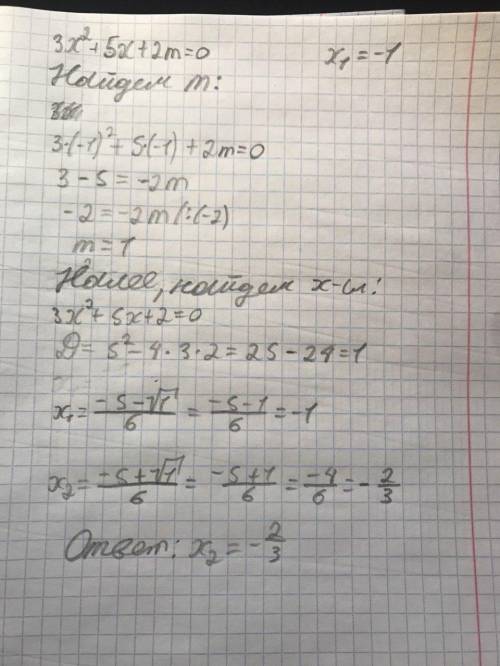 3x²+5x+2m=0 x₁=-1
Найдем m:
3·(-1)²+5·(-1)+2m=0
3-5=-2m
-2=-2m/:(-2)
m=1
Далее, найдем x-сы:
3x²+5x+2=0
D=5²-4·3·2=25-24=1
x₁=(-5-√1)/6=(-5-1)/6=-1
x₂=(-5+√1)/6=(-5+1)/6=-4/6=-2/3
Ответ: x₂=-2/3